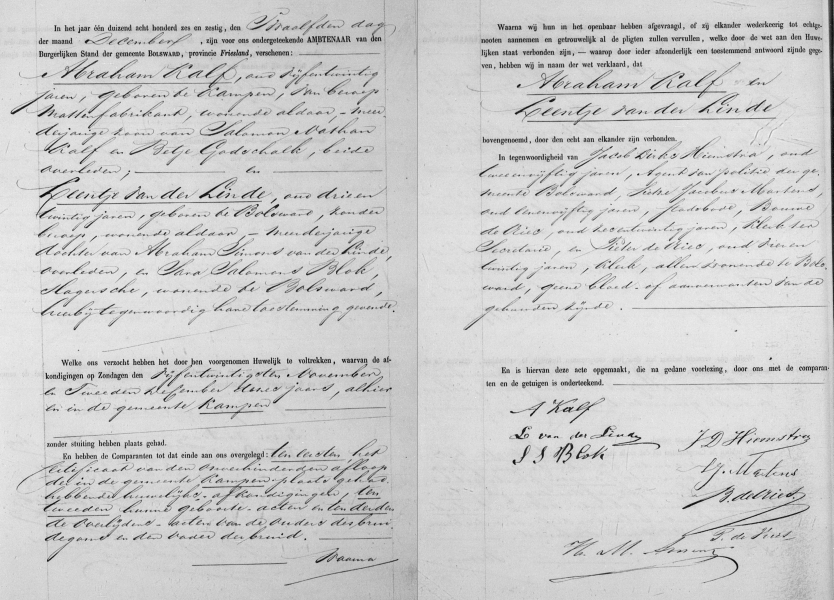 In het jaar één duizend acht honderd zes en zestig, den Twaalfden dag
der maand December, zijn voor ons ondergeteekende AMBTENAAR van den
Burgerlijken Stand der gemeente BOLSWARD, provincie Friesland, verschenen:
Abraham Kalf, oud vijfentwintig
jaren, geboren te Kampen, van beroep
Mattenfabrikant, wonende aldaar, - meer
derjarige zoon van Salomon Nathan
Kalf en Betje Godschalk, beide
overleden; en
Leentje van der Linde, oud drieen
twintig jaren, geboren te Bolsward, zonder
beroep, wonende aldaar, - meerderjarige
dochter van Abraham Simons van der Linde,
overleden, en Sara Salomons Blok,
wonende te Bolsward,
hierbij tegenwoordig hare toestemming gevende.
Welke ons verzocht hebben het door hen voorgenomen Huwelijk te voltrekken, waarvan de af-
kondigingen op Zondagen den vijfentwintigsten November,
en Tweeden December dezes jaars, alhier
en in de gemeente Kampen
zonder stuiting hebben plaats gehad.
En hebben de Comparanten tot dat einde aan ons overgelegd: ten eersten, het
certificaat van den onverhinderden afloop
der in de gemeente Kampen plaats gehad
hebbende huwelijks-afkondigingen, ten
tweeden hunne geboorte-acten en ten derden
de overlijdens-acten van de ouders des brui
degoms en den vader der bruid.
Waarna
Waarna wij hun in het openbaar hebben afgevraagd, of zij elkander wederkeerig tot echtge-
nooten aannemen en getrouwelijk al de pligten zullen vervullen, welke door de wet aan den Huwe-
lijken staat verbonden zijn, — waarop door ieder afzonderlijk een toestemmend antwoord zijnde gege-
ven, hebben wij in naam der wet verklaard, dat
Abraham Kalf en
Leentje van der Linde
bovengenoemd, door den echt aan elkander zijn verbonden.
In tegenwoordigheid van Jacob Dirks Hiemstra, oud
tweeenvijftig jaren, Agent van politie der ge
meente Bolsward, Jacobus Martens,
oud eenenvijftig jaren, Bonne
de Vries, oud zesentwintig jaren, klerk ter
Secretarie, en Pieter de Vries, oud
twintig jaren, klerk, allen wonende te Bols
ward, geene bloed- of aanverwanten van de
gehuwden zijnde.
En is hiervan deze acte opgemaakt, die na gedane voorlezing, door ons met de comparan-
ten en de getuigen is onderteekend.
A Kalf
L van der Linde
S S Blok
J D Hiemstra
J. Martens
B. de Vries
P. de Vries